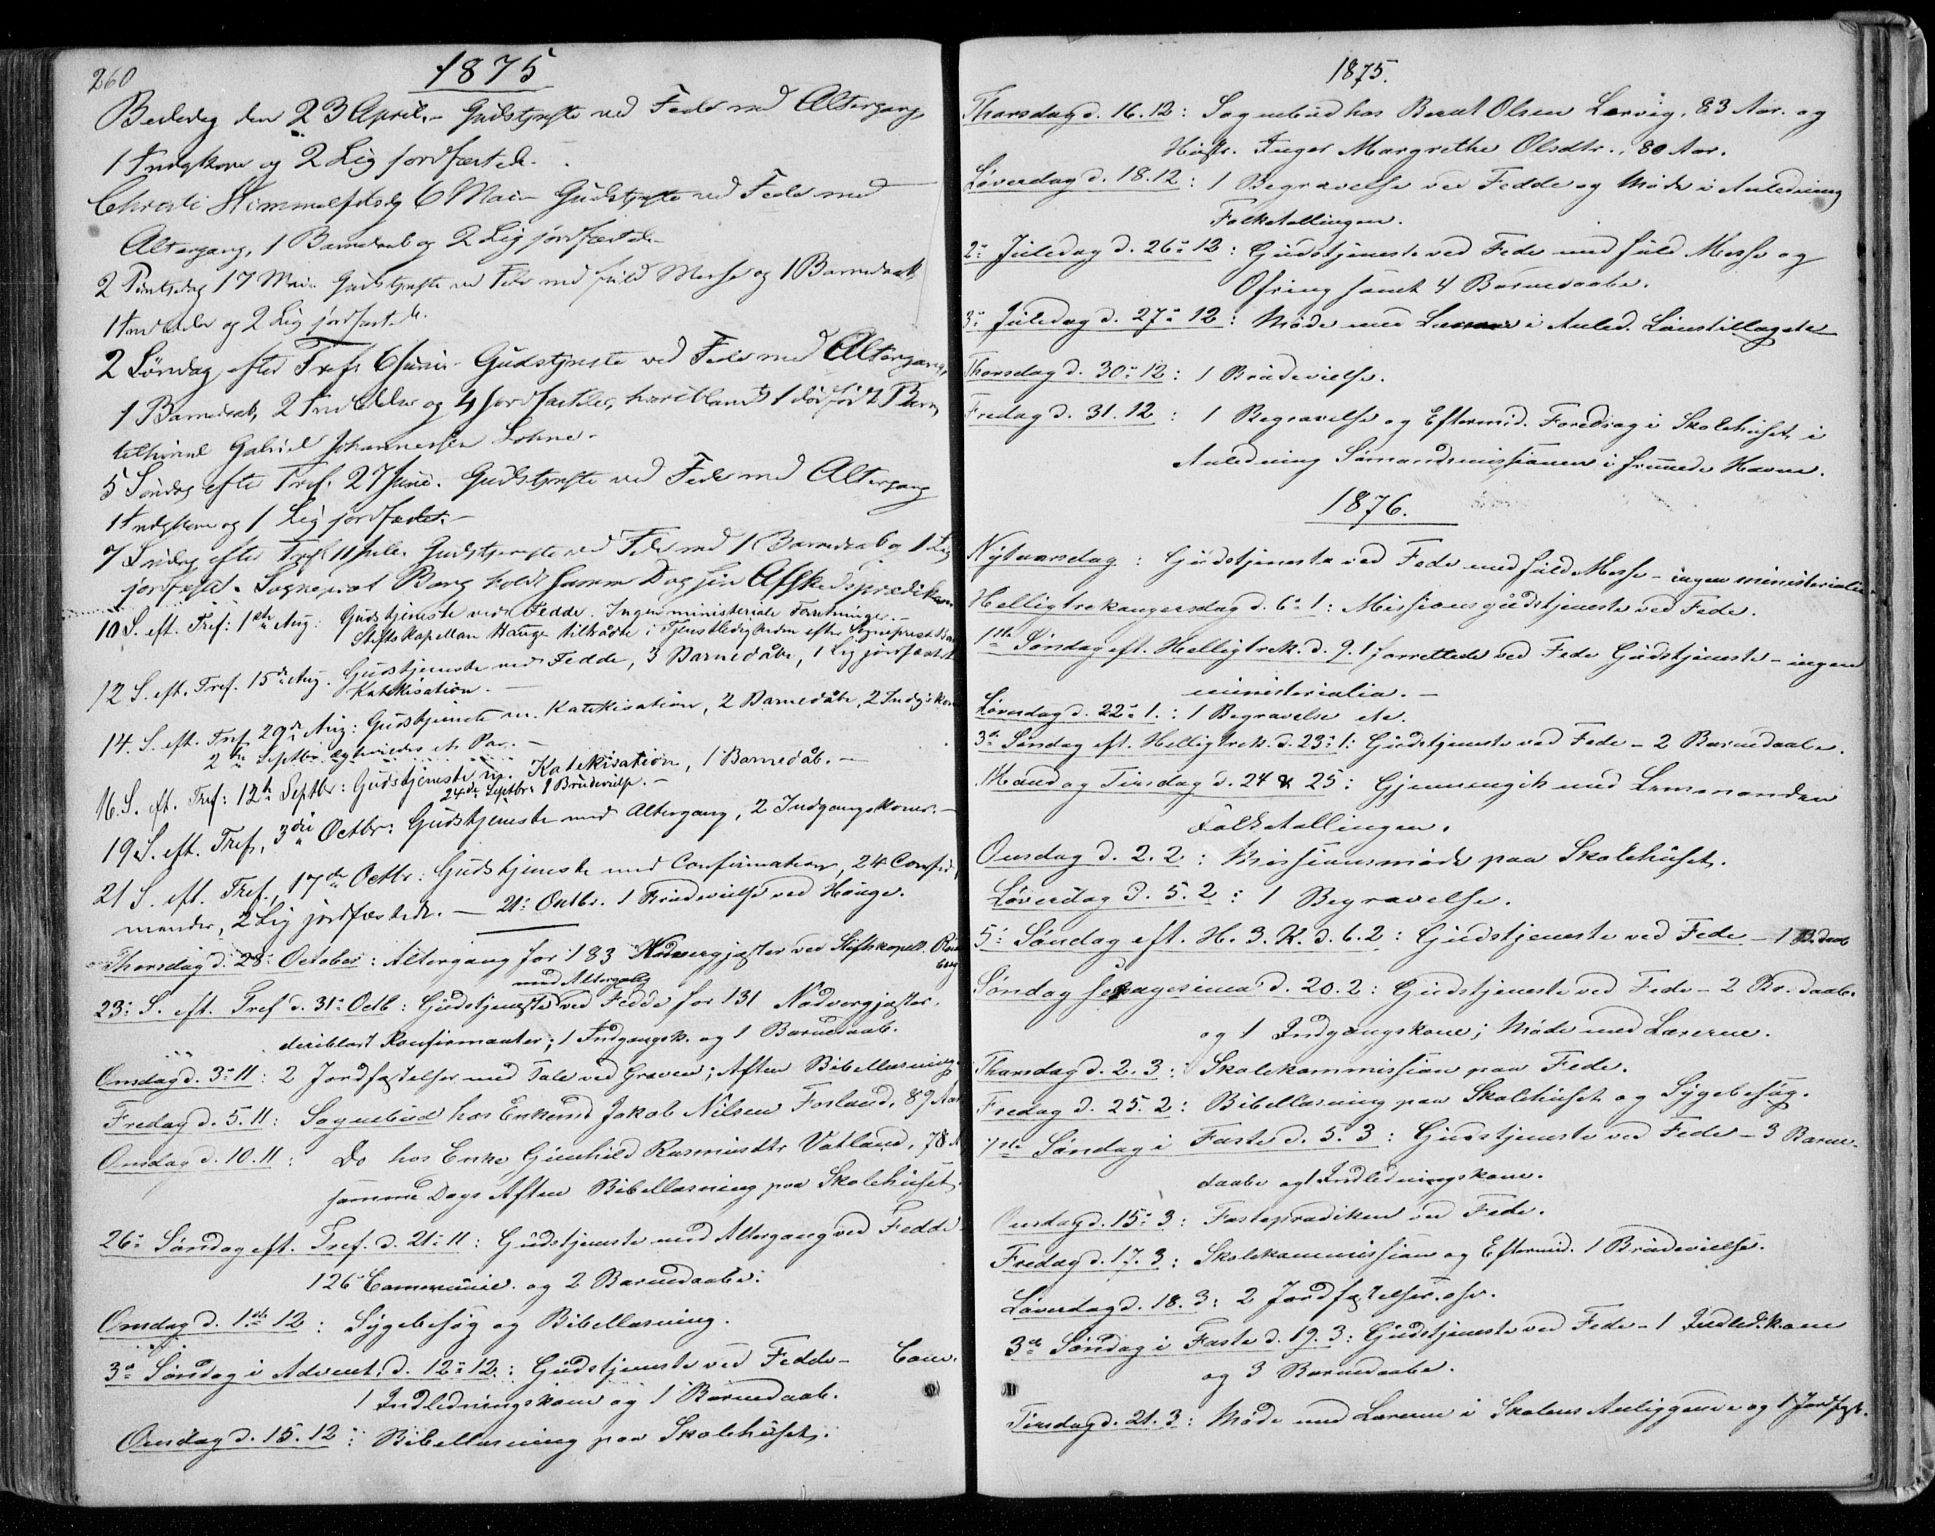 260
1875
Bededag den 23 April.- Gudstjeneste ved Fede med Altergang
1 Indgkone og 2 Lig jordfæstede.
Christi Himmelf 6 Mai - Gudstjeneste ved Fede med
Altergang, 1 Barnedaab og 2 Lig jordfæstede
2 Pintsedag 17 Mai Gudstjeneste ved Fede med fuld Messe og 1 Barnedaab
1 og 2 Lig jordfæstede.
2 Søndag efter Tref. 6 Juni - Gudstjeneste ved Fede med Altergang,
1 Barnedaab, 2 og 4 Jordfæstelser, heriblandt 1 dødfødt Barn
tilhørende Gabriel Johannessen
5 Søndag efter Tref. 27 Juni. Gudstjeneste ved Fede med Altergang
1 Indgkone og 1 Lig jordfæstet.-
7 Søndag efter Tref 11 Juli. Gudstjeneste ved Fede med 1 Barnedaab og 1 Lig
jordfæst. Sogneprest Bang holdt samme Dag sin Afskedsprædiken
10 S. eft. Tref: 1ste Aug: Gudstjeneste ved Fedde. Ingen ministeriale Forretninger.-
Stiftskapellan Hauge tiltrådte i Tjenstledigheden efter Sogneprest Bang
12 S. eft. Tref. 15de Aug. Gudstjeneste ved Fedde, 3 Barnedåbe, 1 Lig jordfæstet
Katekisation. -
14. S. eft. Tref 29de Aug: Gudstjeneste m. Katekisation, 2 Barnedåbe, 2 Indgskoner
2den Septbr. ægtevides et Par. -
16 S. eft. Tref: 12te Septbr: Gudstjeneste m. Katekisation, 1 Barnedåb. -
24de Septbr. 1 Brudevielse. -
19 S. eft. Tref, 3die Octbr: Gudstjeneste med Altergang, 2 Indgangskoner. -
21 S. eft. Tref, 17de Octbr: Gudstjeneste med Confirmation, 24 Confir-
mander, 2 Lig jordfæstede. - 21: Octbr. 1 Brudevielse ved Hauge.
Thorsdag d. 28: October: Altergang for 183 Nadvergjæster ved Stiftskapell.
med Altergang
23: S. eft. Tref d. 31: Octb: Gudstjeneste ved Fedde for 131 Nadvergjæster.
deriblant Konfirmanter; 1 Indgangsk. og 1 Barnedaab.
Onsdag d. 3: 11: 2 Jordfæstelser med Tale ved Graven; Aften Bibellæsning.
Fredag d. 5. 11: Sognebud hos Enkemd Jakob Nilsen Forland, 89 Aar
Onsdag d. 10. 11: Do hos Enke Gunhild Rasmusdtr Vatland, 78 A
samme Dags Aften Bibellæsning paa Skolehuset.
26: Søndag eft. Tref. d. 21: 11: Gudstjeneste med Altergang ved Fedde
126 Communic. og 2 Barnedaabe.
Onsdag d. 1ste 12: Sygebesøg og Bibellæsning.
3: Søndag i Advent, d. 12: 12: Gudstjeneste ved Fedde -
1 Indledningskone og 1 Barnedaab.
Onsdag d. 15. 12: Bibellæsning paa Skolehuset.
1875.
Thorsdag d. 16. 12: Sognebud hos Berat Olsen Lervig, 83 Aar. og
Hustr. Inger Margrethe Olsdtr., 80 Aar.
Løverdag d. 18. 12: 1 Begravelse ved Fedde og Møde i Anledning
Folketellingen.
2: Juledag d. 26: 12: Gudstjeneste ved Fede med fuld Messe og
Ofring samt 4 Barnedaabe.
3: Juledag d. 27: 12: Møde med i Anled. Lønstillægets
Thorsdag d. 30: 12: 1 Brudevielse.
Fredag d. 31. 12: 1 Begravelse og Eftermid. Foredrag i Skolehuset i
Anledning Sømandsmissionen i fremmede Havne.
1876.
Nytaarsdag: Gudstjeneste ved Fede med fuld Messe - ingen ministerialia.
Helligtrekongersdag d. 6: 1: Missionsgudstjeneste ved Fede.
1ste Søndag eft. Helligtrek. d. 9. 1 forrettede ved Fede Gudstjeneste - ingen
ministerialia. -
Løverdag d. 22: 1.: 1 Begravelse etc.
3die Søndag eft. Helligtrek. d. 23: 1: Gudstjeneste ved Fede - 2 Barnedaabe.
Mandag Tirsdag d. 24 & 25: Gjennemgik med Lensmanden
Folketællingen.
Onsdag d. 2. 2: Missionsmøde paa Skolehuset.
Løverdag d. 5. 2: 1 Begravelse.
5: Søndag eft. H. 3. K. d. 6. 2: Gudstjeneste ved Fede - 1 B.daab
Søndag Sexagesima d. 20. 2: Gudstjeneste ved Fede - 2 Br. daabe
og 1 Indgangskone; Møde med Lærerne.
Thorsdag d. 2. 3: Skolekommission paa Fede.
Fredag d. 25. 2: Bibellæsning paa Skolehuset og Sygebesøg.
1ste Søndag i Faste d. 5. 3: Gudstjeneste ved Fede - 3 Barne-
daabe og 1 Indledningskone.
Onsdag d. 15: 3: Fasteprædiken ved Fede.
Fredag d. 17. 3: Skolekommission og Eftermid. 1 Brudevielse.
Løverdag d. 18. 3: 2 Jordfæstelser. osv.
3die Søndag i Faste d. 19. 3: Gudstjeneste ved Fede - 1 Indled.kone
og 3 Barnedaabe.
Tirsdag d. 21. 3: Møde med Lærerne i Skolens Anliggende og 1 Jordfæst.